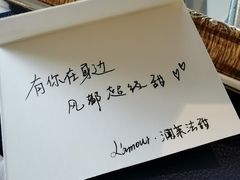 有你在身边
风都超级甜
L'amour·澜菓法甜